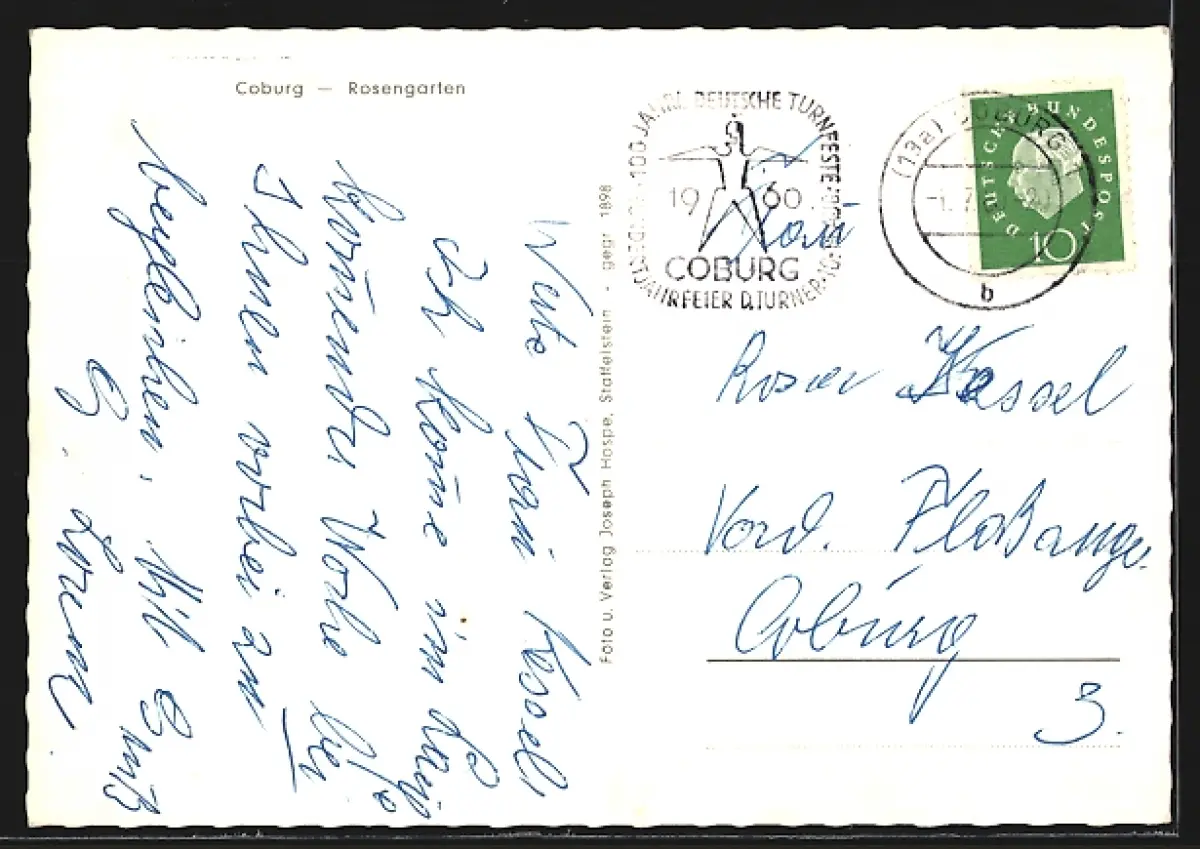 Coburg — Rosengarten
Werte Frau Kessel
Ich komme im Lauf
kommender Woche bei
Ihnen vorbei zum
begleichen. Mit Gruß
G.
Foto u. Verlag Joseph Haspe, Staffelstein - gegr. 1898
100 JAHRE DEUTSCHE TURNFESTE
1960
COBURG
FEIER D. TURNER
(13a) COBURG 1
b
DEUTSCHE BUNDESPOST
10
Frau
Kessel
Vord. Floßanger
Coburg
3.